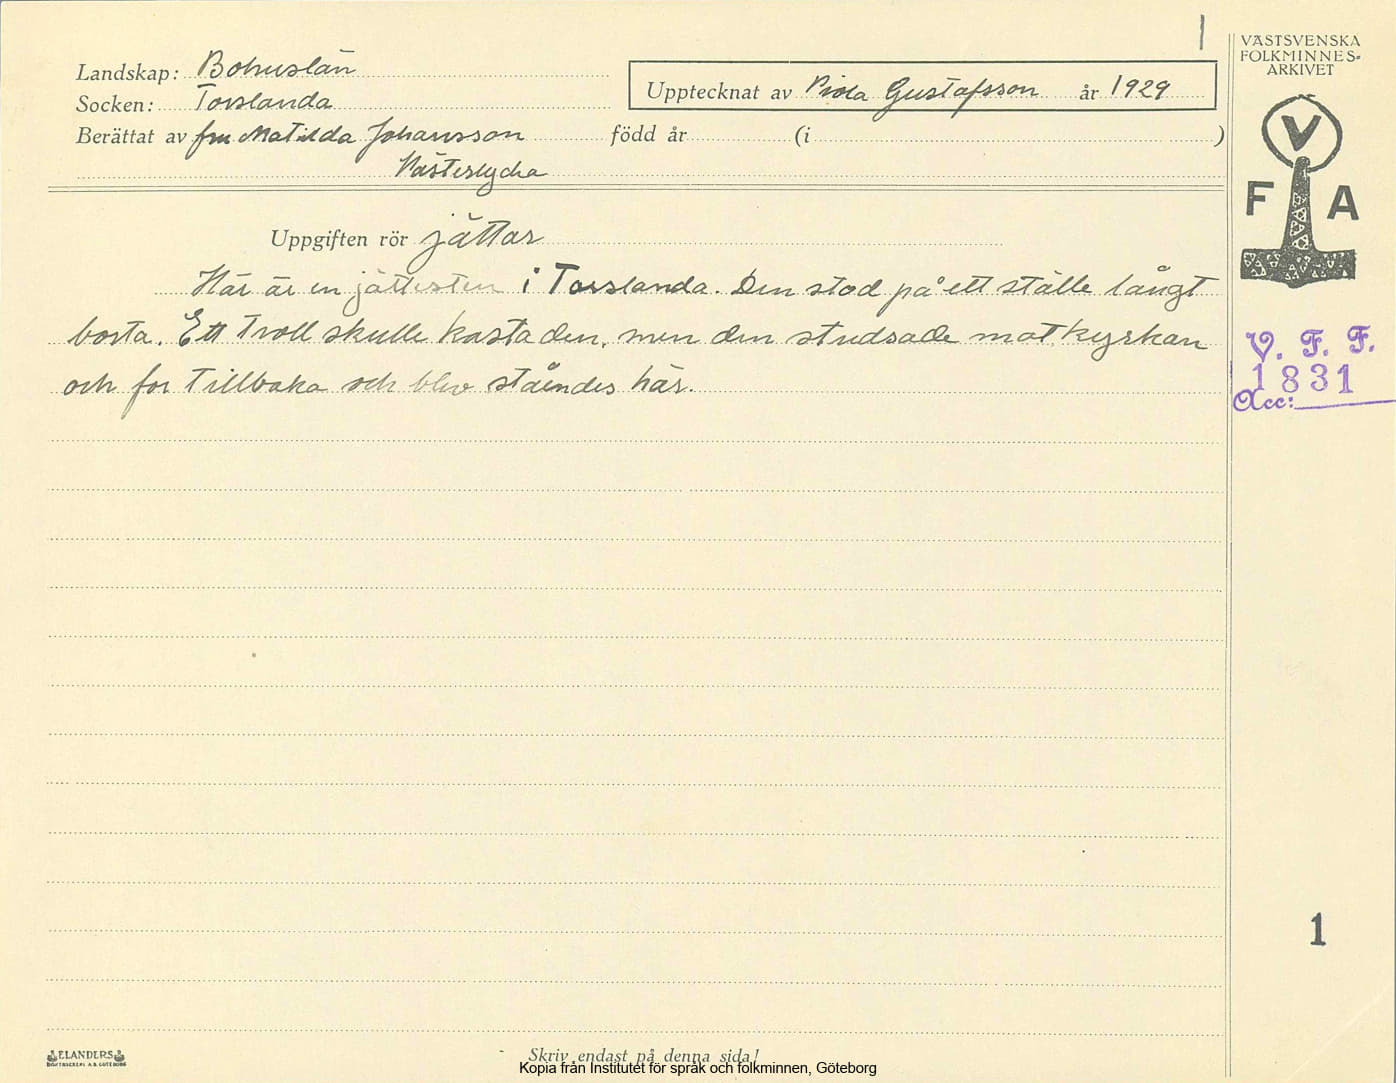 VÄSTSVENSKA
FOLKMINNES=
ARKIVET
V
F A
Landskap: Bohuslän
Socken: Torslanda
Upptecknat av Viola Gustafsson år 1929
Berättat av fru Matilda Johansson född år (i )
Västerlycka
Uppgiften rör jättar
Här är en jättesten i Torslanda. Den stod på ett ställe långt
borta. Ett troll skulle kasta den, men den studsade mot kyrkan
och for tillbaka och blev ståendes här.
V. F. F.
1831
Acc:
1
ELANDERS
BOKTRYCKERI A.B. GÖTEBORG
Skriv endast på denna sida!
Kopia från Institutet för språk och folkminnen, Göteborg